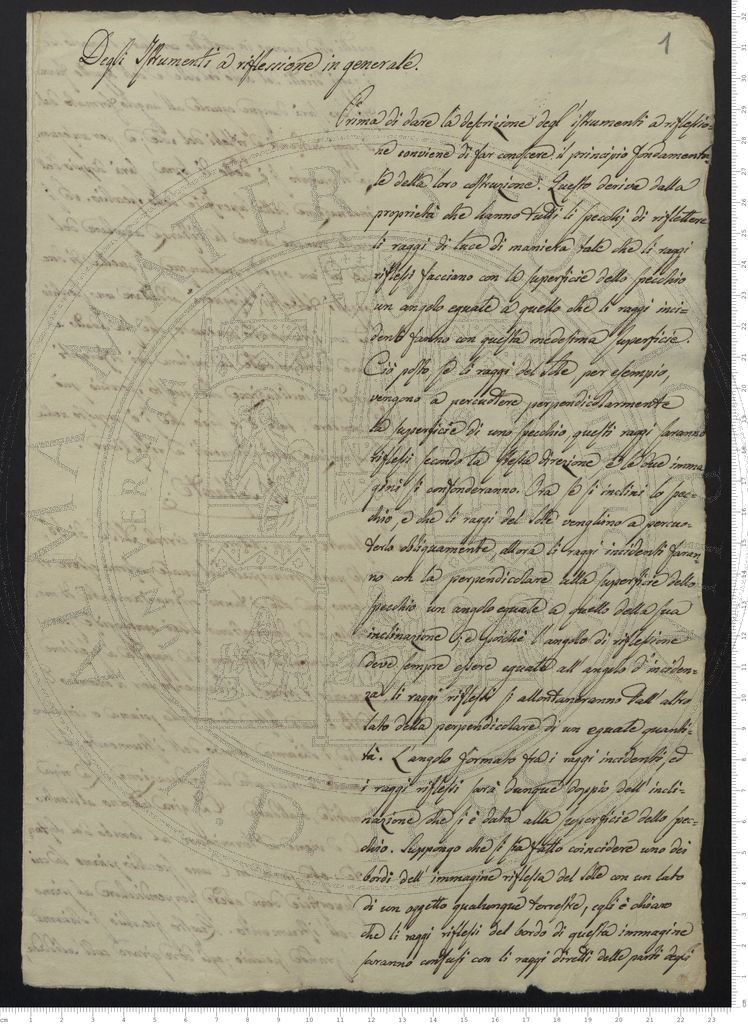 1
Degli Istrumenti a riflessione in generale.
Prima di dare la descrizione degl'istrumenti a riflessio-
ne conviene di far conoscere il principio fondamenta-
le della loro costruzione. Questo deriva dalla
proprietà che hanno tutti li specchj di riflettere
li raggi di luce di maniera tale che li raggi
riflessi facciano con la superficie dello specchio
un angolo eguale a quello che li raggi inci=
denti fanno con questa medesima superficie.
Ciò posto se li raggi del Sole, per esempio,
vengono a percuotere perpendicolarmente
la superficie di uno specchio questi raggi saranno
riflessi secondo la stessa direzione e le due imma
gini si confonderanno. Ora se si inclini lo spec=
chio, e che li raggi del Sole venghino a percuo-
terlo obliquamente, allora li raggi incidenti faran-
no con la perpendicolare alla superficie dello
specchio un angolo eguale a quello della sua
inclinazione, e poichè l'angolo di riflessione
deve sempre essere eguale all'angolo d'inciden-
za, li raggi riflessi si allontaneranno dall'altro
lato della perpendicolare di un eguale quanti-
tà. L'angolo formato fra i raggi incidenti ed
i raggi riflessi sarà dunque doppio dell'incli-
nazione che si è data alla superficie dello spec-
chio. Suppongo che si sia fatto coincidere uno dei
bordi dell'immagine riflessa del Sole con un lato
di un oggetto qualunque terrestre, egli è chiaro
che li raggi riflessi del bordo di questa immagine
saranno confusi con li raggi diretti delle parti degli
ALMA MATER
A.D.
cm 1 2 3 4 5 6 7 8 9 10 11 12 13 14 15 16 17 18 19 20 21 22 23